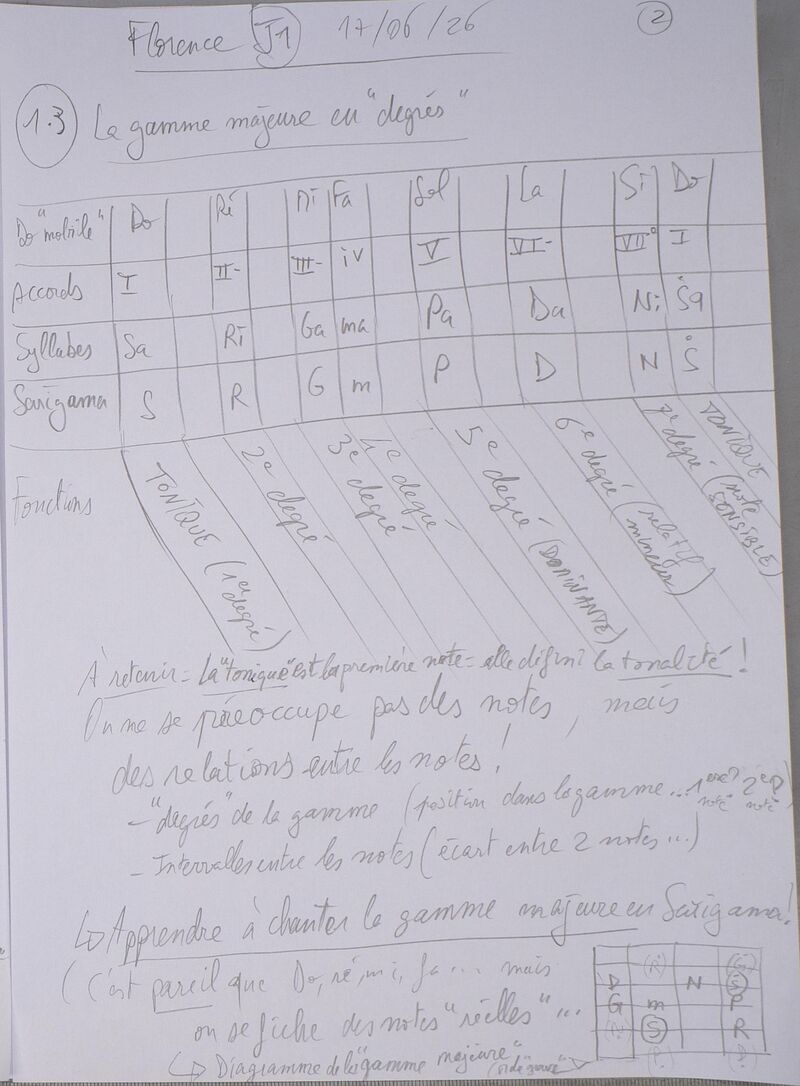 Florence J1 17/06/26 2
1.3 La gamme majeure en "degrés"
Do "mobile" Do Ré Mi Fa Sol La Si Do
Accords I II- III- iv V VI- VII° I
Syllabes Sa Ri Ga ma Pa Da Ni Ṡa
Sarigama S R G m P D N Ṡ
Fonctions
TONIQUE (1er degré)
2e degré
3e degré
4e degré
5e degré (DOMINANTE)
6e degré (relatif mineur)
7e degré (note SENSIBLE)
TONIQUE
À retenir = La "tonique" est la première note = elle défini la tonalité !
On ne se préoccupe pas des notes, mais
des relations entre les notes !
- "degrés" de la gamme (position dans la gamme... 1ere note 2e note)
- Intervalles entre les notes (écart entre 2 notes...)
↳ Apprendre à chanter la gamme majeure en Sarigama !
(C'est pareil que Do, ré, mi, fa... mais
on se fiche des notes "réelles"...
↳ Diagramme de la "gamme majeure"
(R) (G)
D N Ṡ
G m P
S R